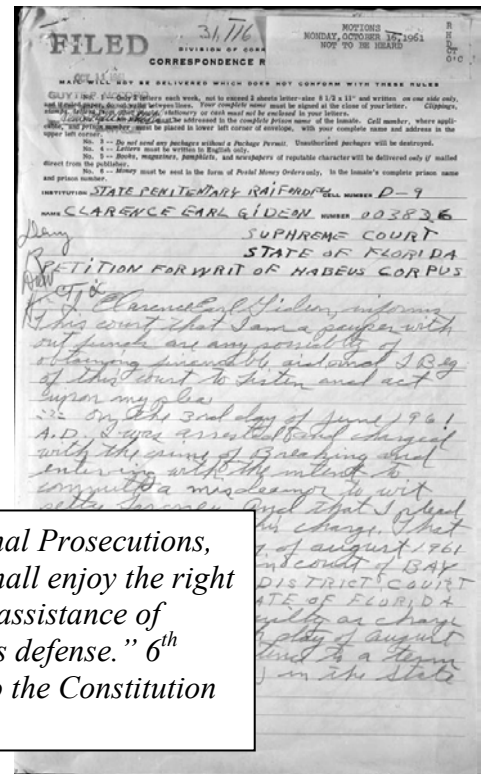 FILED
31,716
MOTIONS
MONDAY, OCTOBER 16, 1961
NOT TO BE HEARD
DIVISION OF CORR
CORRESPONDENCE R
MAIL WILL NOT BE DELIVERED WHICH DOES NOT CONFORM WITH THESE RULES
No. 1 -- Only 2 letters each week, not to exceed 2 sheets letter-size 8 1/2 x 11" and written on one side only,
and if ruled paper, do not write between lines. Your complete name must be signed at the close of your letter. Clippings,
stamps, letters from other people, stationery or cash must not be enclosed in your letters.
must be addressed in the complete prison name of the inmate. Cell number, where appli-
cable, and prison number must be placed in lower left corner of envelope, with your complete name and address in the
upper left corner.
No. 3 -- Do not send any packages without a Package Permit. Unauthorized packages will be destroyed.
No. 4 -- Letters must be written in English only.
No. 5 -- Books, magazines, pamphlets, and newspapers of reputable character will be delivered only if mailed
direct from the publisher.
No. 6 -- Money must be sent in the form of Postal Money Orders only, in the inmate's complete prison name
and prison number.
INSTITUTION STATE PENITENTARY RAIFORD CELL NUMBER D-9
NAME CLARENCE EARL GIDEON NUMBER 003826
SUPHREME COURT
STATE OF FLORIDA
PETITION FOR WRIT OF HABEUS CORPUS
I, Clarence Earl Gideon, informs
This court that I am a pauper with
out funds are any possibly of
obtaining financable aid and I Beg
of this court to listen and act
upon my plea
On the 3rd day of June 1961
A.D. I was arrested and charged
with the crime of Breaking and
entering with the intent to
commit a misdeamor to wit
petty larceny. And that I plead
his charge. That
of august 1961
court of BAY
DISTRICT COURT
ATE OF FLORIDA
guilty as charge
day of august
to a term
in the State
nal Prosecutions,
hall enjoy the right
assistance of
s defense." 6th
o the Constitution